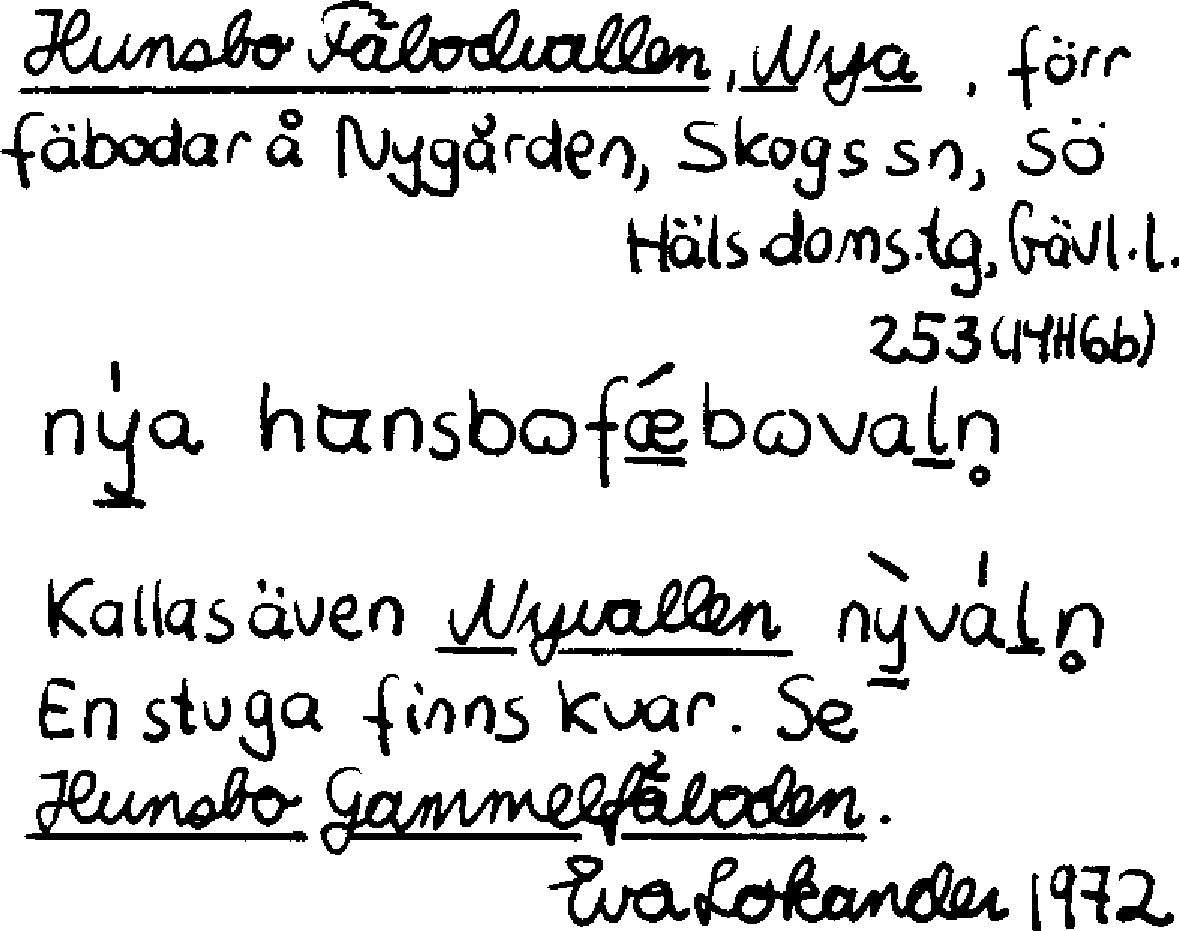 Hunsbo Fäbodvallen, Nya, förr
fäbodar å Nygården, Skogs sn, sö
Häls doms.tg, Gävl.l.
253 (14H6b)
nýa hɑnsbωfǽbωvaln̥
Kallas även Nyvallen nỳváln̥
En stuga finns kvar. Se
Hunsbo Gammelfäboden.
Eva Lokander 1972